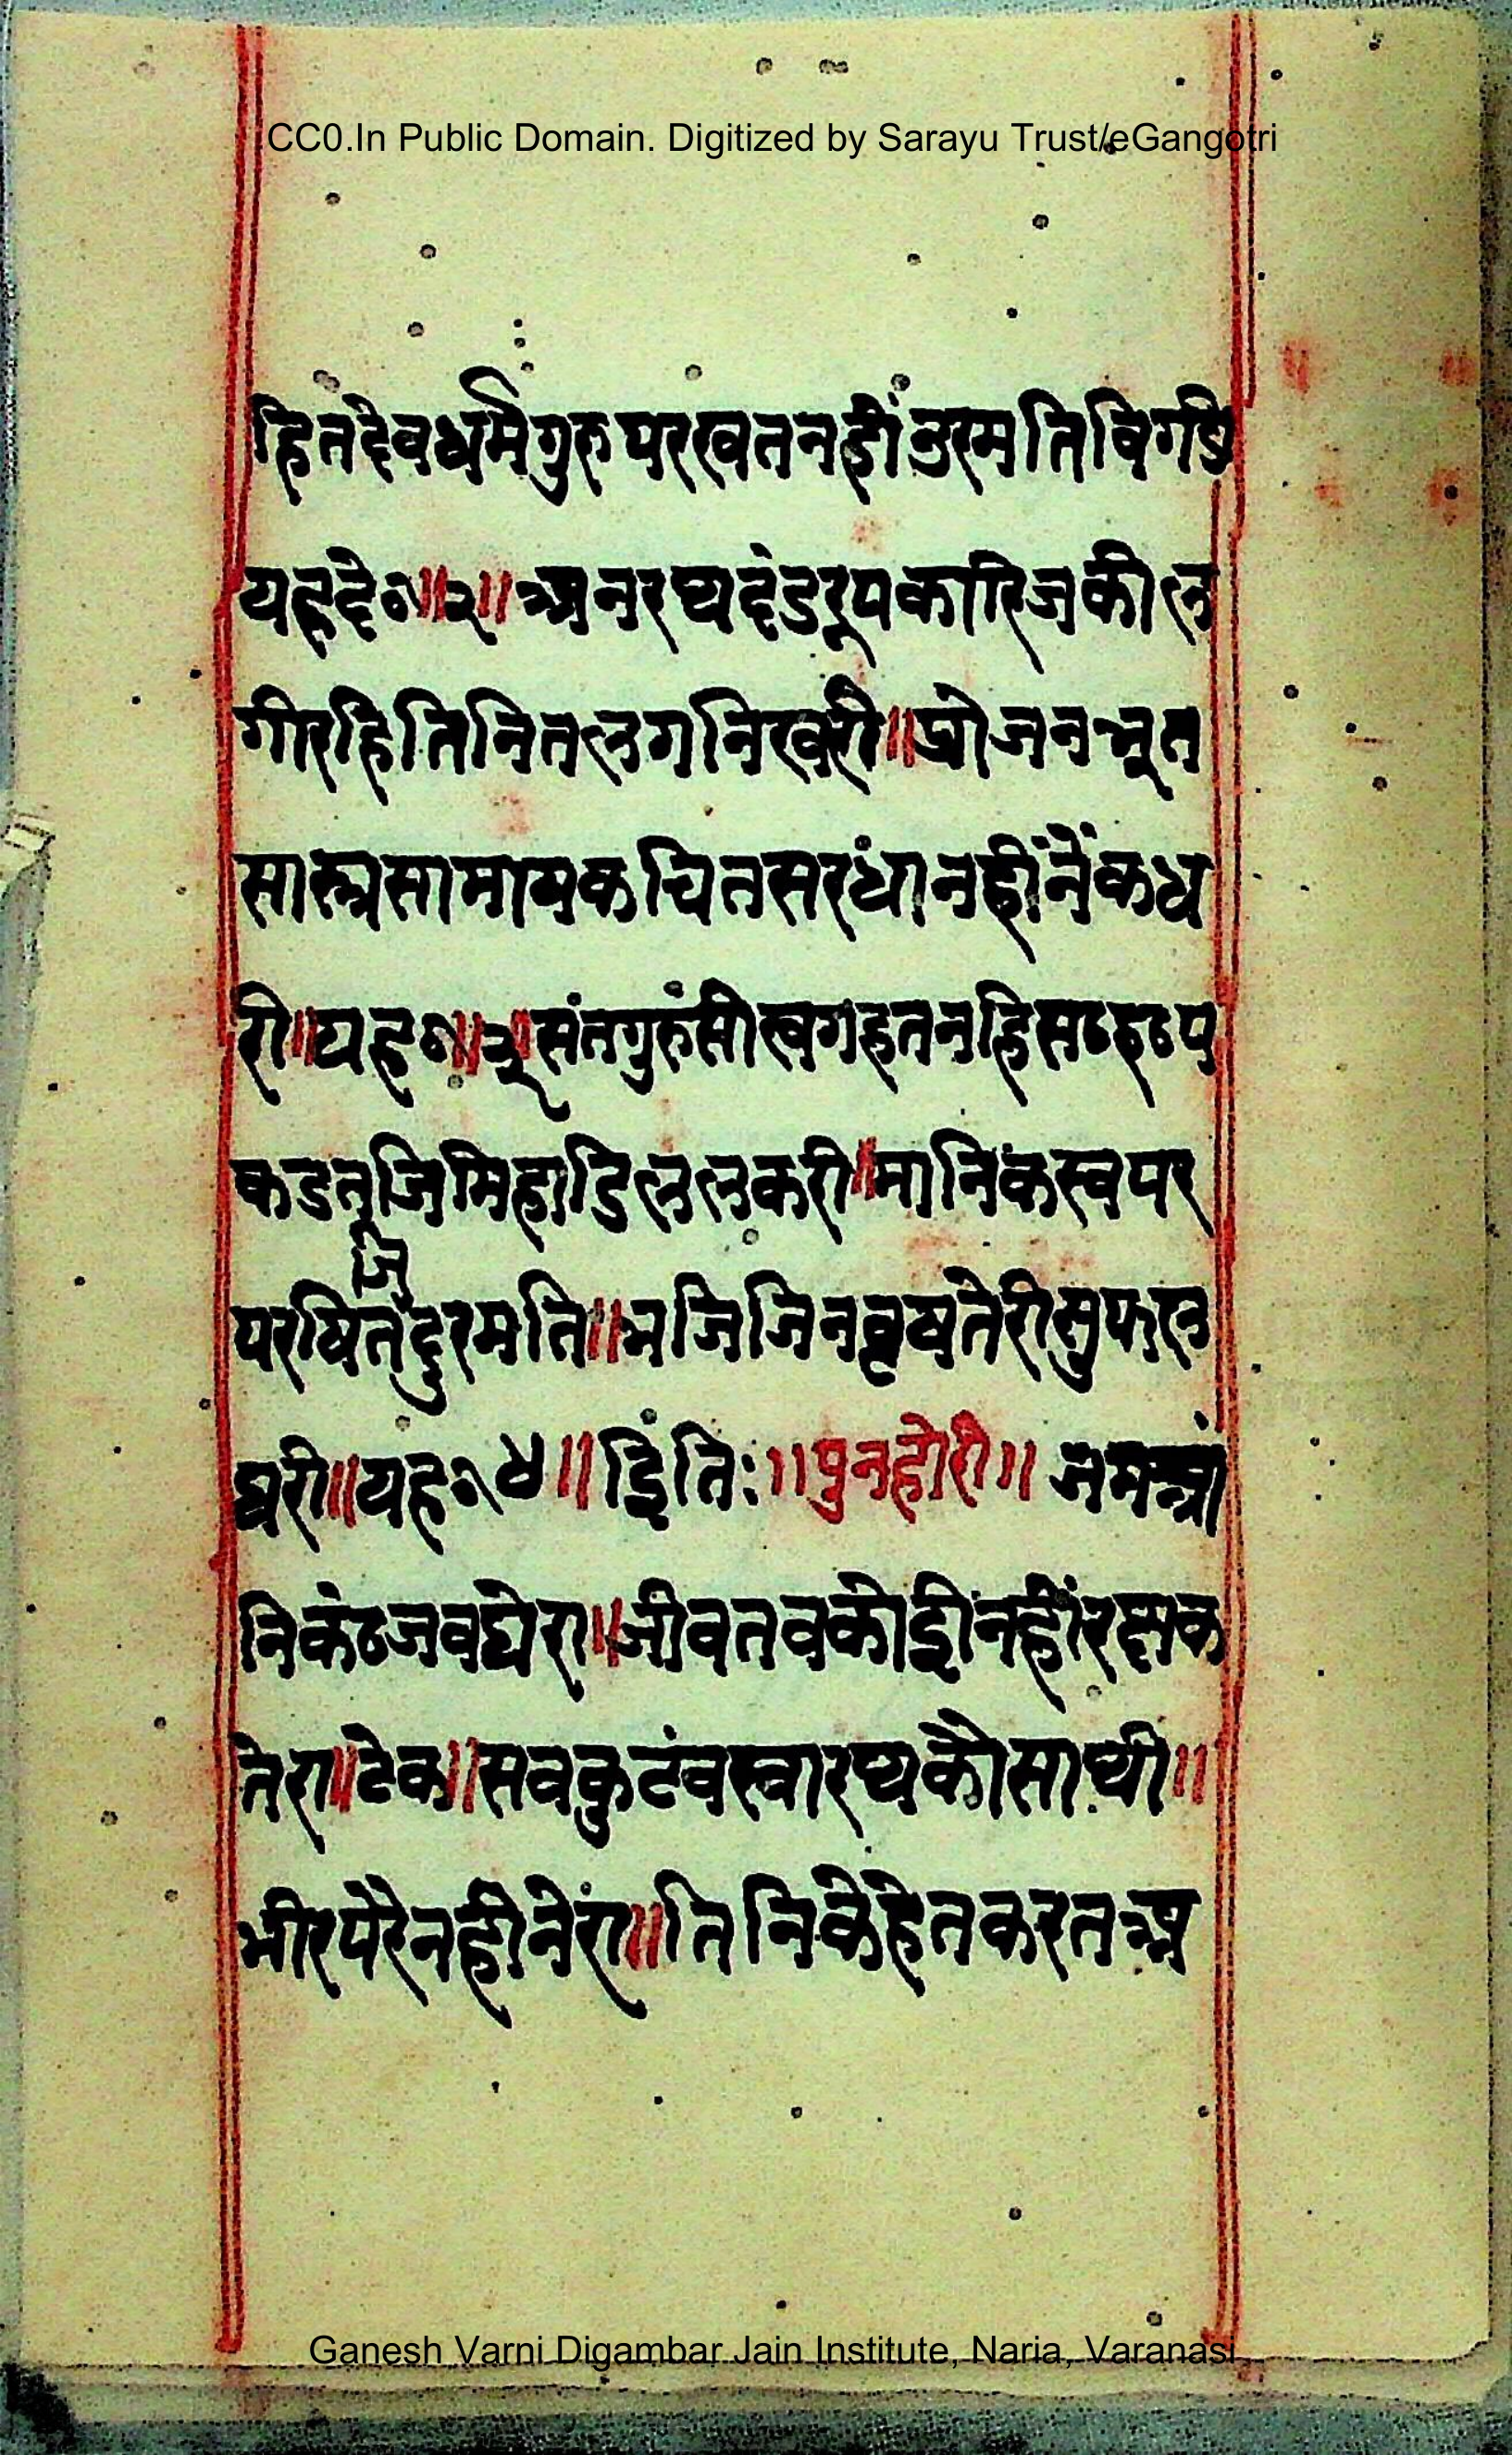 CC0.In Public Domain. Digitized by Sarayu Trust/eGangotri
हितदेवधर्मगुरुपरखतनहीं नुरमतिविगडी
यहदे०॥२॥अनरथदंडरूपकारिजकील
गीरहितिनितलगनिखरी॥प्रोजनभूत
सास्त्रसामायकचितसरधांनहींनेंकध
री॥यह०॥३॥संतगुरुंसीखगहतनहिसठहठप
कडतजिमिहाडिललकरी॥मानिकस्वपर
जि
परषितदुरमति॥भजिजिनवृषतेरीसुफल
घरी॥यह०४॥इिंतिः॥पुनहोरी॥जमआं
निकंठजवघेरा॥जीवतवकोईनहींरक्षक
तेरा॥टेक॥सवकुटंवस्वारथकौसाथी॥
भीरपरैनहीनेरां॥तिनिकेहेतकरतअ
Ganesh Varni Digambar Jain Institute, Naria, Varanasi